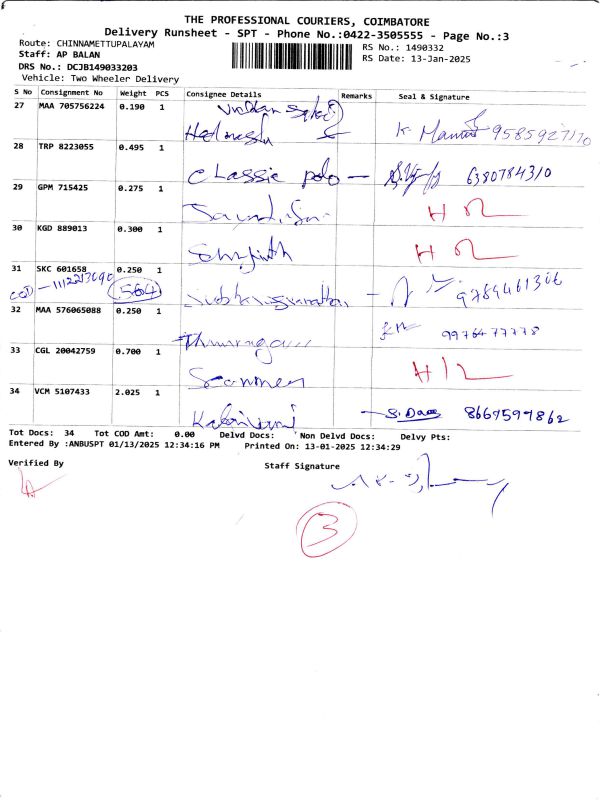 THE PROFESSIONAL COURIERS, COIMBATORE
Delivery Runsheet - SPT - Phone No.:0422-3505555 - Page No.:3
Route: CHINNAMETTUPALAYAM
RS No.: 1490332
Staff: AP BALAN
RS Date: 13-Jan-2025
DRS No.: DCJB149033203
Vehicle: Two Wheeler Delivery
S No Consignment No Weight PCS Consignee Details Remarks Seal & Signature
27 MAA 705756224 0.190 1 9585927170
28 TRP 8223055 0.495 1 Classic polo - 6380784310
29 GPM 715425 0.275 1
30 KGD 889013 0.300 1
31 SKC 601658 0.250 1 9789461306
COD 564
32 MAA 576065088 0.250 1 9976477778
33 CGL 20042759 0.700 1
34 VCM 5107433 2.025 1 8667597862
Tot Docs: 34 Tot COD Amt: 0.00 Delvd Docs: Non Delvd Docs: Delvy Pts:
Entered By :ANBUSPT 01/13/2025 12:34:16 PM Printed On: 13-01-2025 12:34:29
Verified By Staff Signature
3